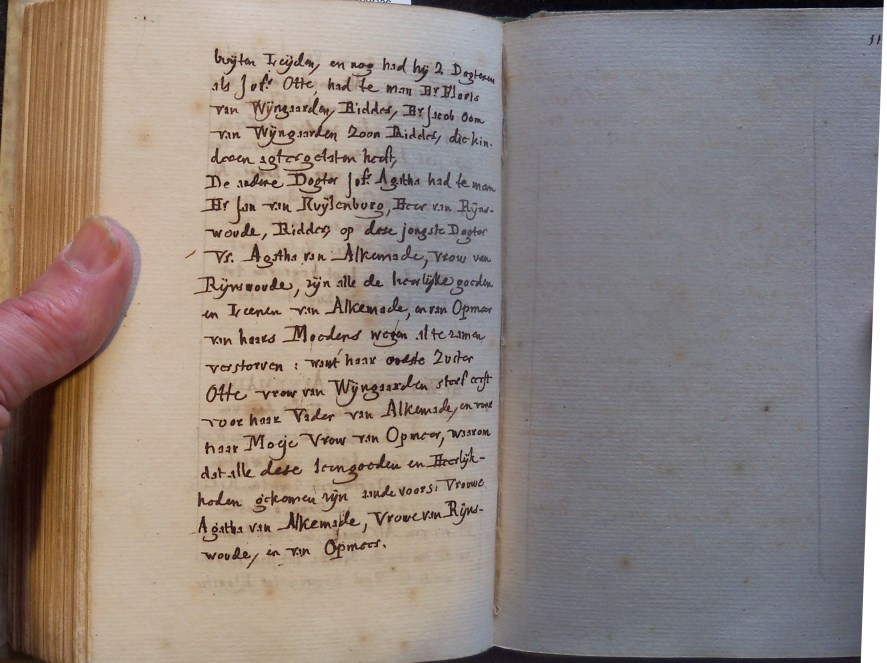 buijten Leijden, en nog had hij 2 Dogteren
als Jof:r Otte, had te man Hr Floris
van Wijngaarden, Ridder, Hr Jacob Oom
van Wijngaarden Zoon Ridder, die kin-
deren agtergelaten heeft,
De andere Dogter Jof:r Agatha had te man
Hr Jan van Kuijlenburg, Heer van Rijns-
woude, Ridder, op dese jongste Dogter
Vs. Agatha van Alkemade, vrow van
Rijnswoude, zijn alle de heerlijke goeden
en Leenen van Alkemade, en van Opmeer
van haars Moeders wegen al te zamen
verstorven : want haar oudste Zuster
Otte vrow van Wijngaarden sterf eerst
voor haar Vader van Alkemade, en voor
haar Moeje Vrow van Opmeer, waarom
dat alle dese leengoeden en Heerlijk-
heden gekomen zijn aan de voors: Vrouwe
Agatha van Alkemade, Vrouwe van Rijns-
woude, en van Opmeer.
31